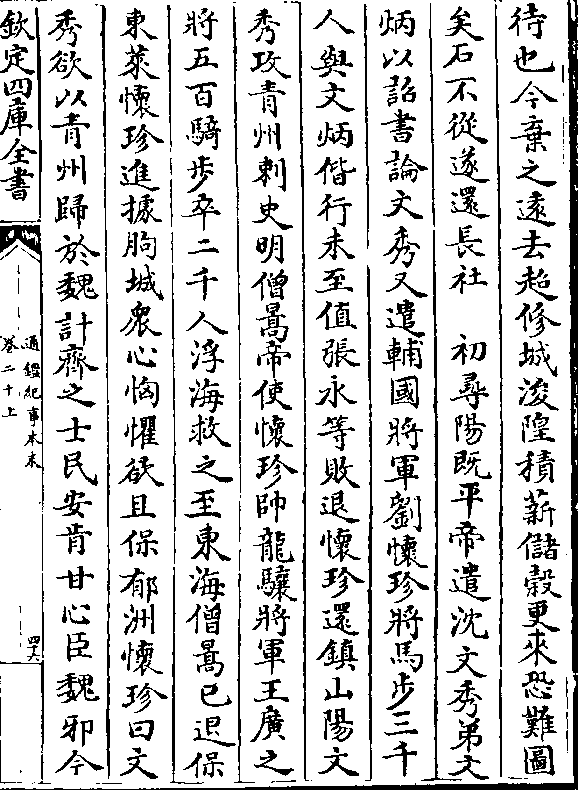 待也今棄之逺去超修城浚隍積薪儲穀更來恐難圖
矣石不從遂還長社　初尋陽既平帝遣沈文秀弟文
炳以詔書諭文秀又遣輔國將軍劉懷珍將馬步三千
人與文炳偕行未至值張永等敗退懷珍還鎮山陽文
秀攻青州刺史明僧暠帝使懷珍帥龍驤將軍王廣之
將五百騎步卒二千人浮海救之至東海僧暠已退保
東萊懷珍進據朐城衆心恟懼欲且保郁洲懷珍曰文
秀欲以青州歸於魏計齊之士民安肯甘心臣魏邪今
欽定四庫全書
通鑑紀事本末
卷二十上
四六